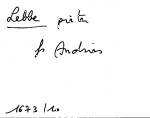 Lebbe pietr
fs Andries
1673/10